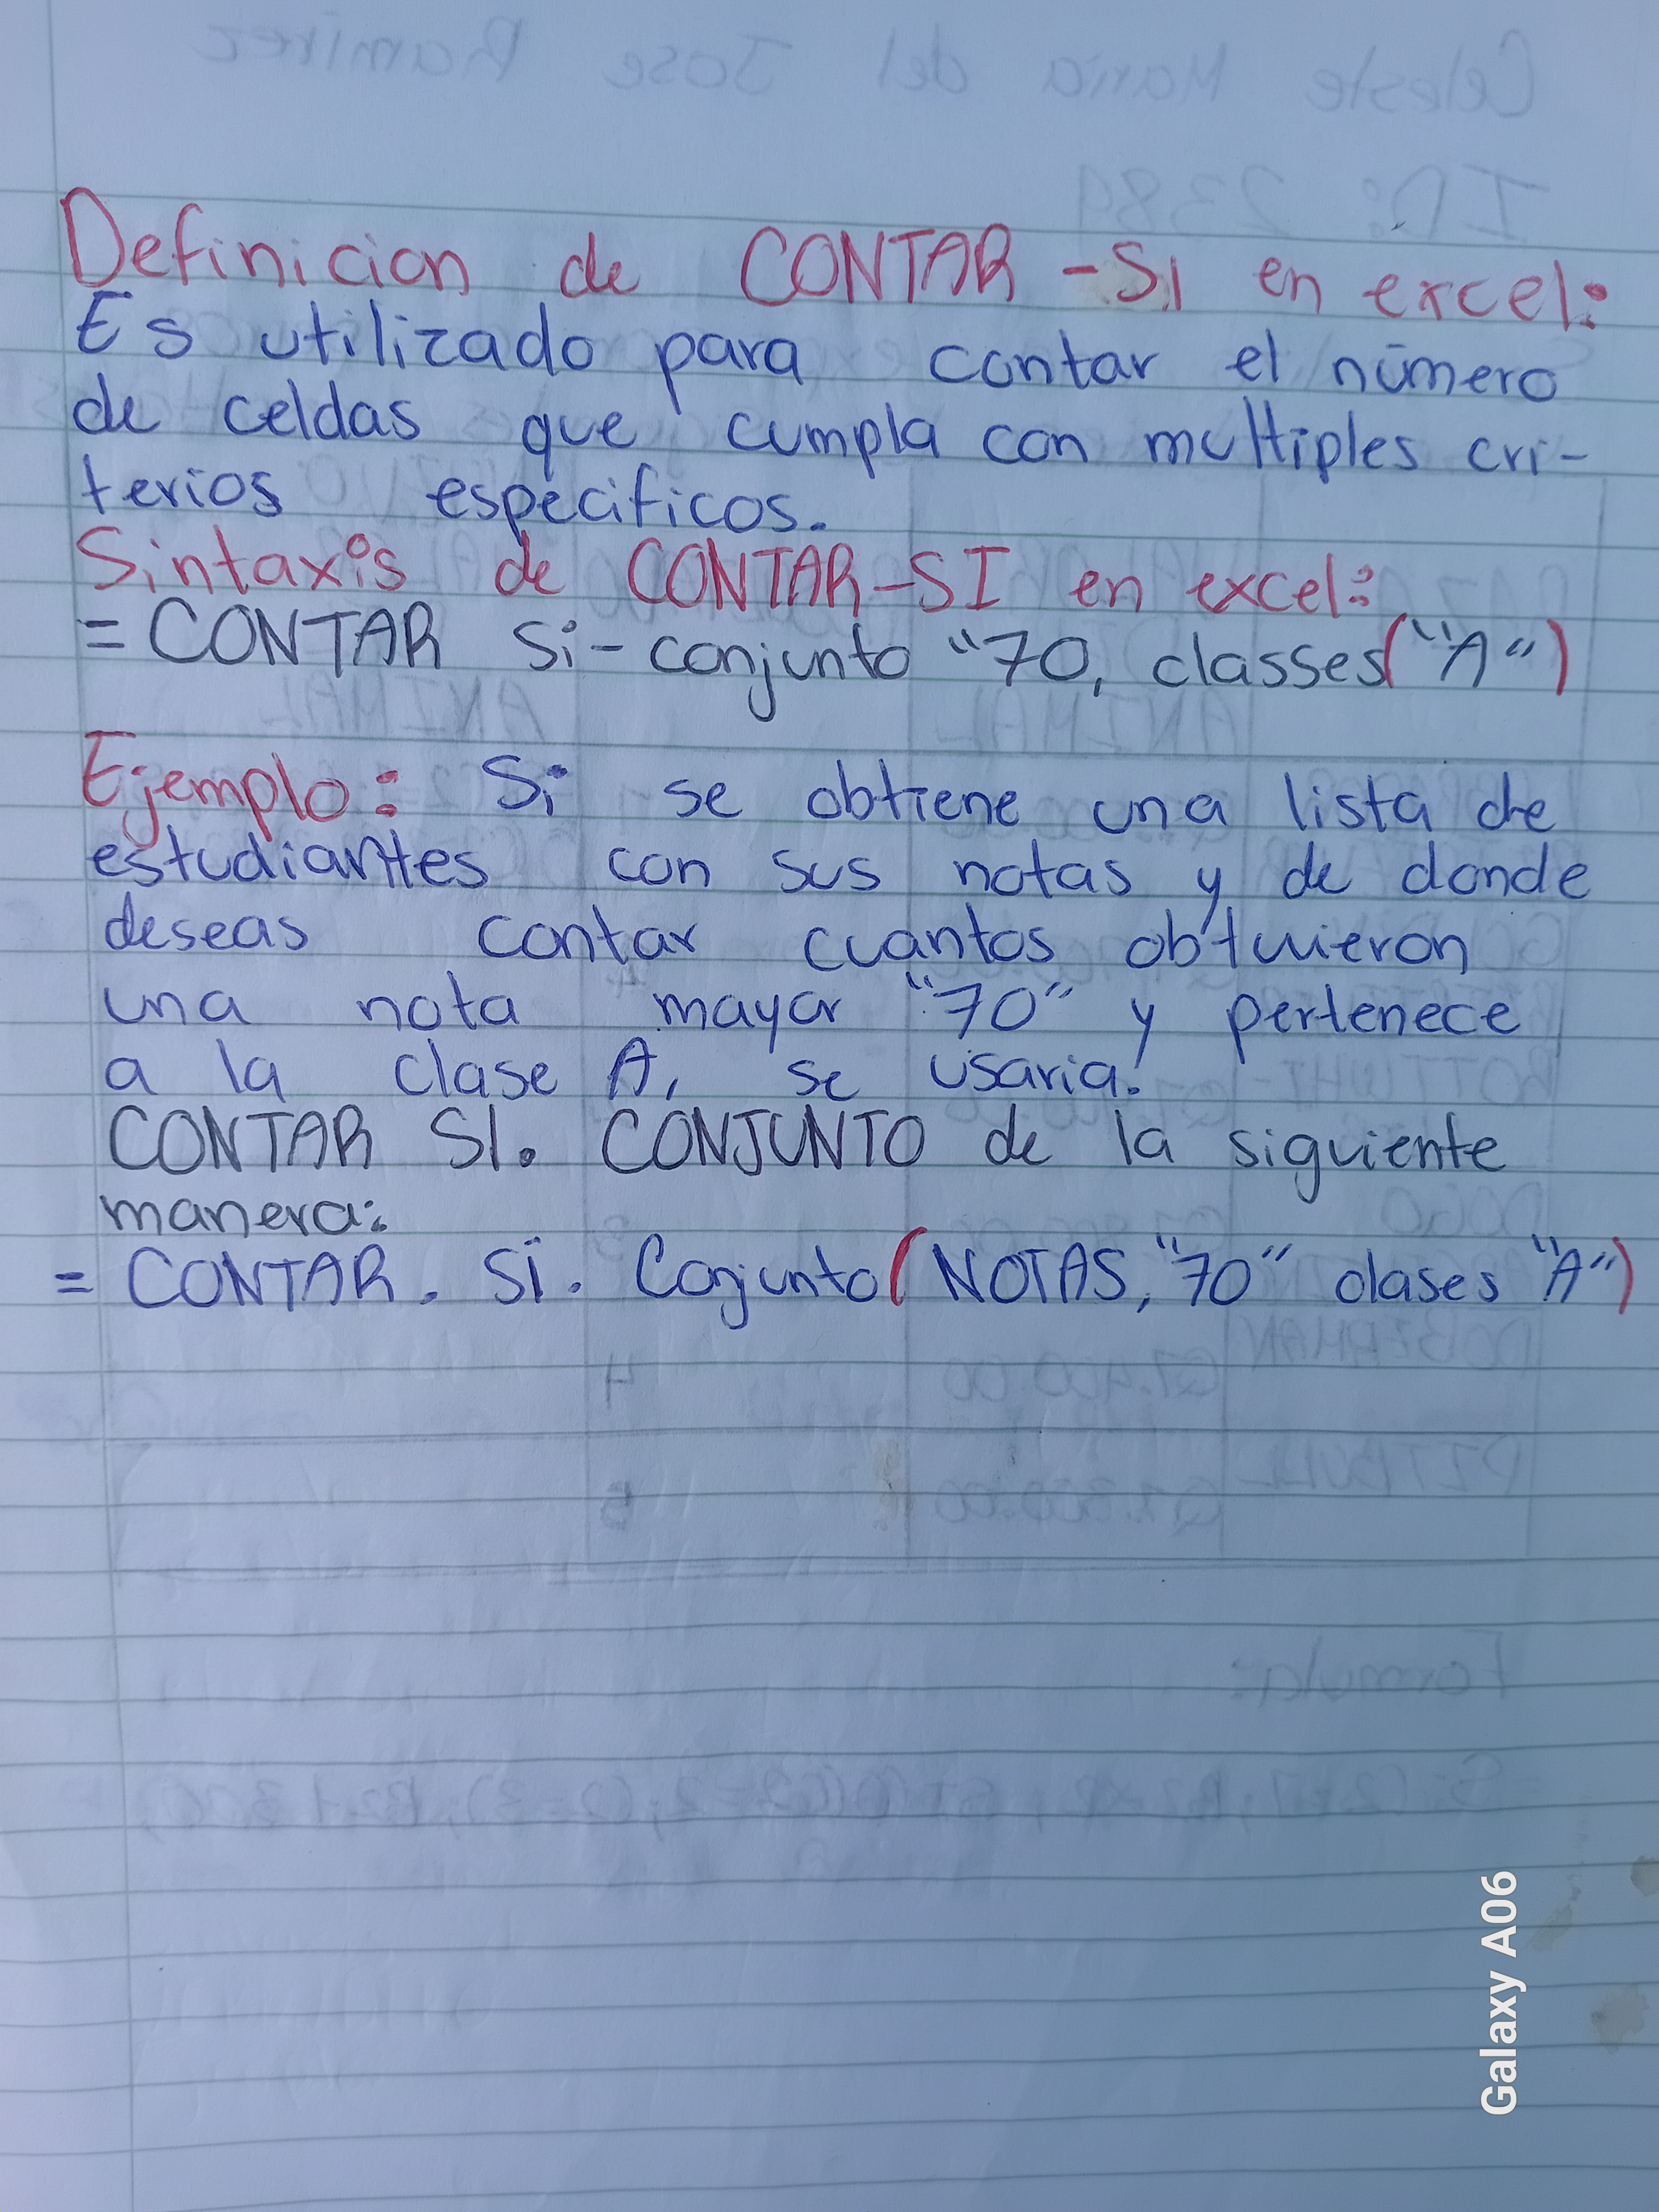 Definicion de CONTAR -SI en excel:
Es utilizado para contar el número
de celdas que cumpla con multiples cri-
terios especificos.
Sintaxis de CONTAR-SI en excel:
= CONTAR Si-conjunto "70, classes("A")
Ejemplo: Si se obtiene una lista de
estudiantes con sus notas y de donde
deseas contar cuantos obtuvieron
una nota mayor "70" y pertenece
a la clase A, se usaria:
CONTAR SI. CONJUNTO de la siguiente
manera:
= CONTAR. SI. Conjunto(NOTAS,"70" clases "A")
Galaxy A06